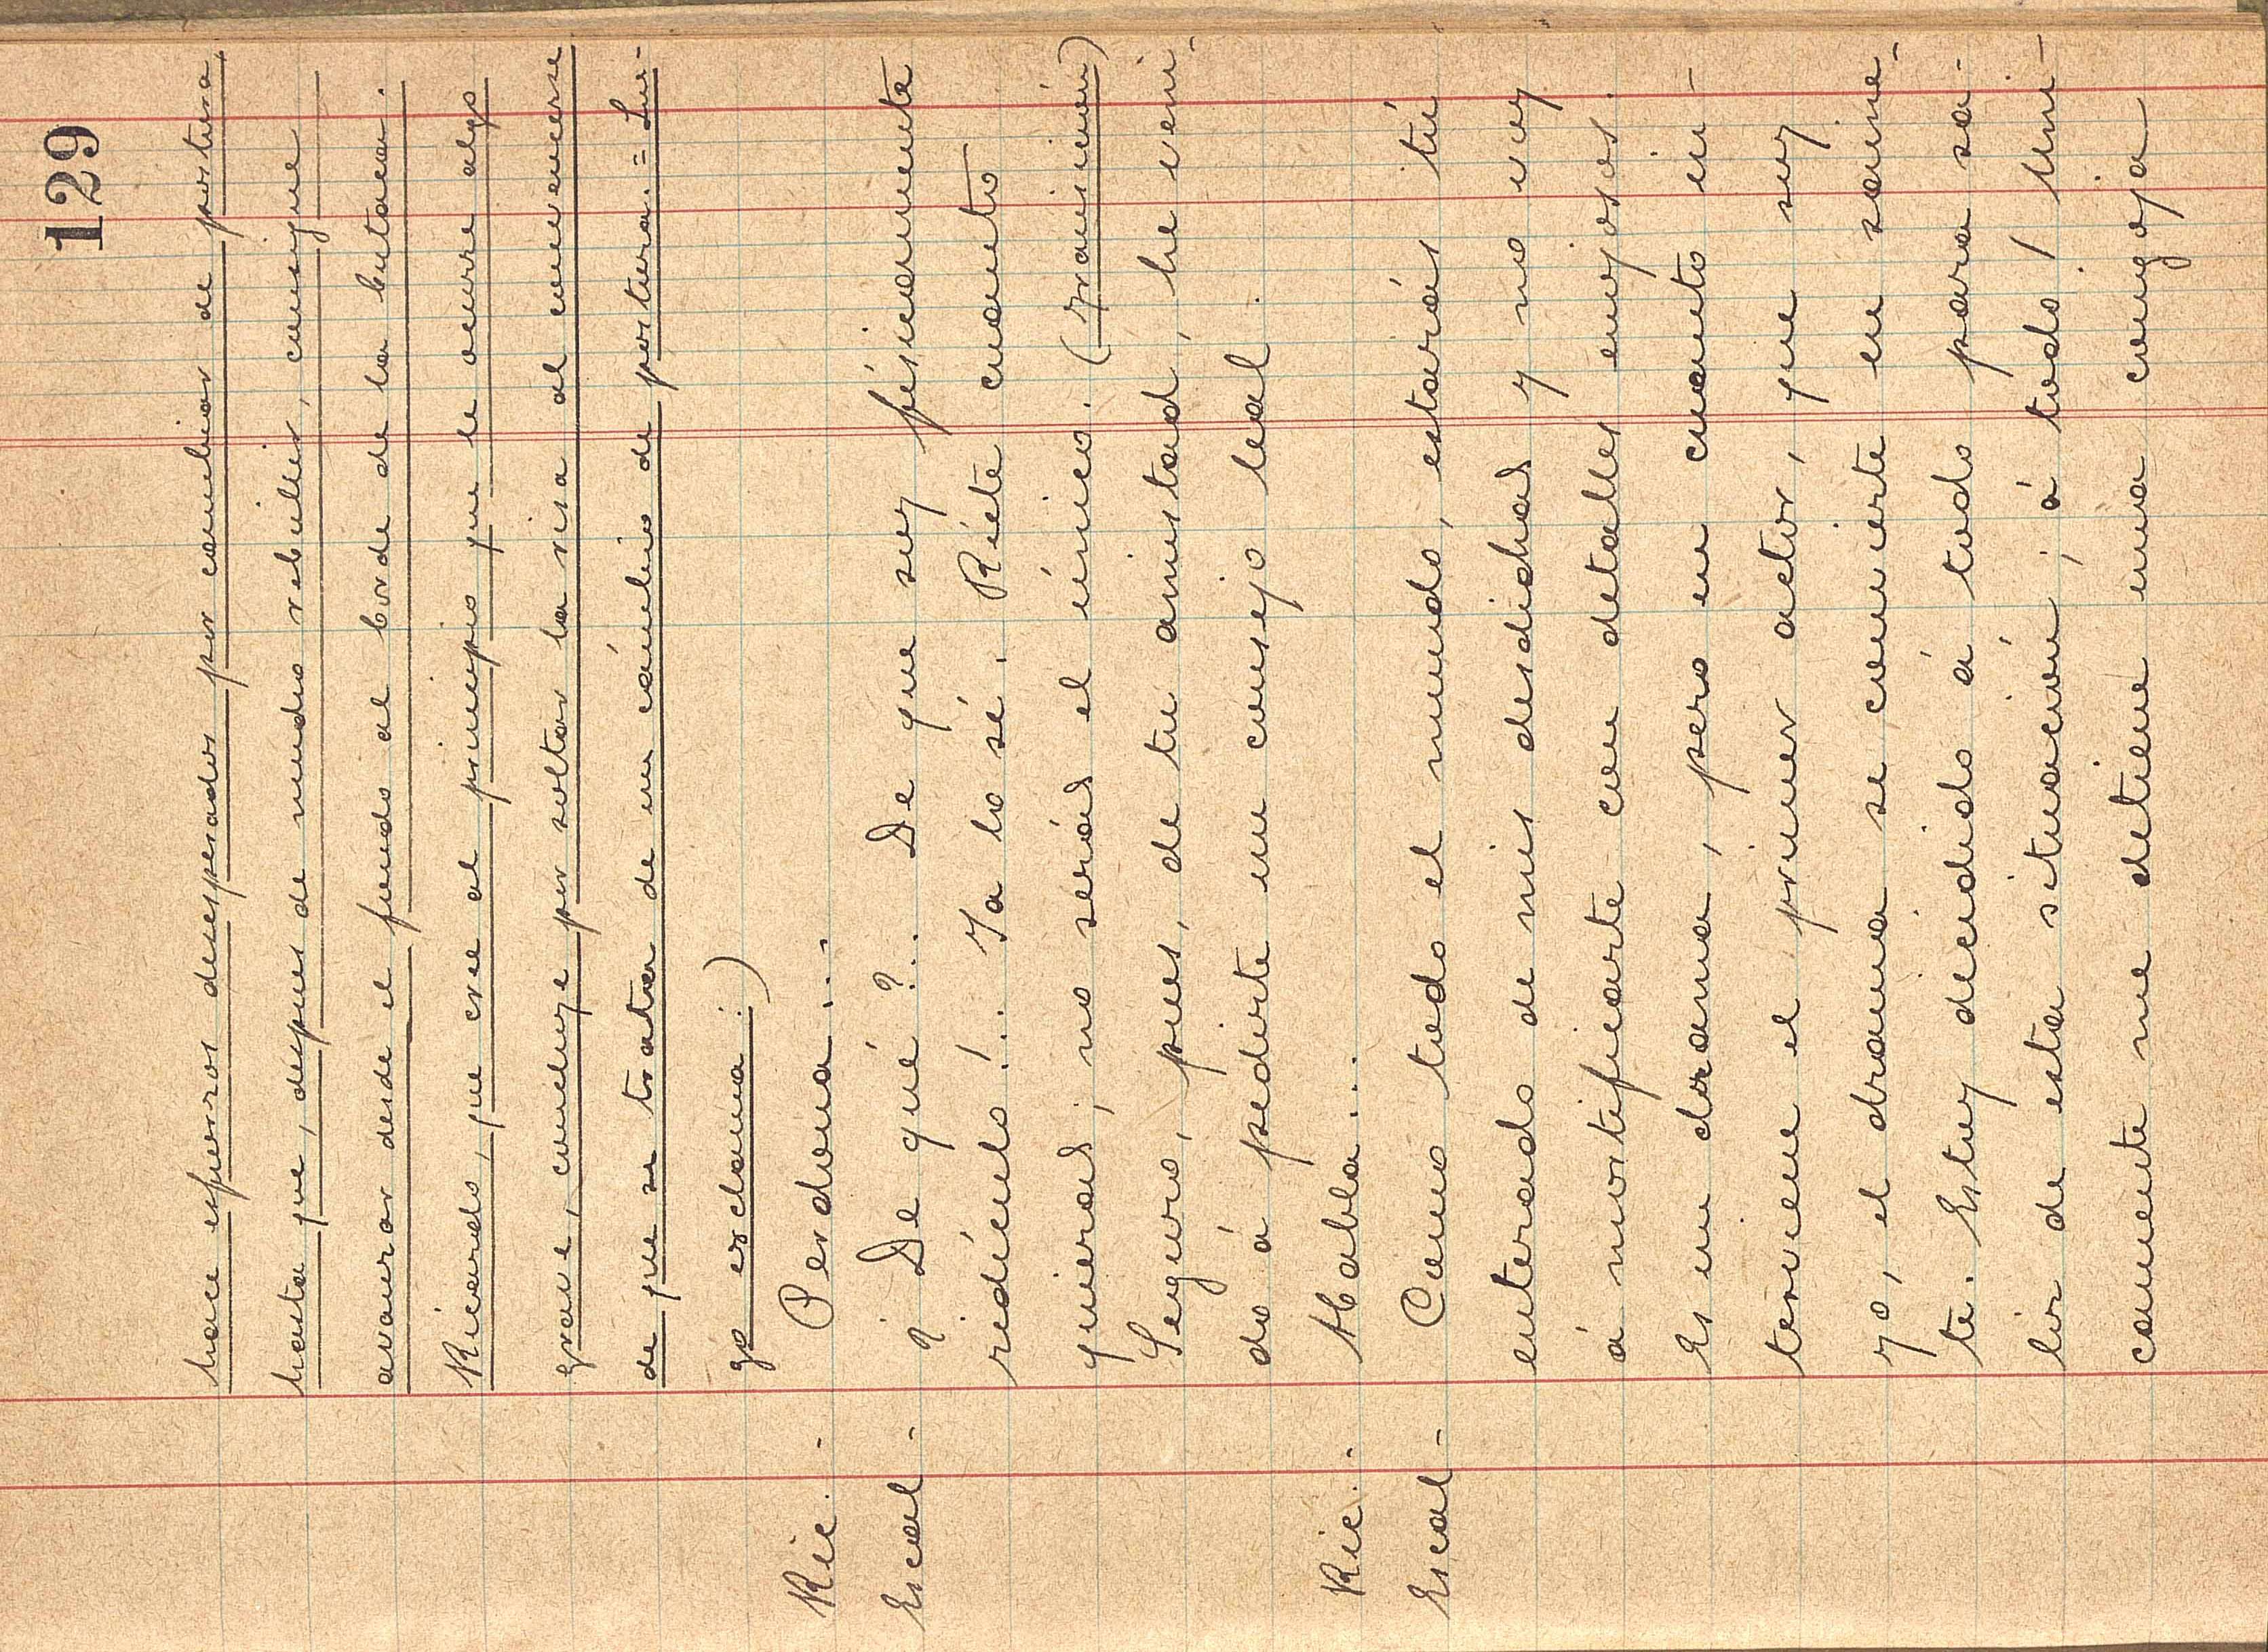 129
hace esfuerzos desesperados por cambiar de postura,
hasta que, despues de mucho rebullir, consigue
avanzar desde el fondo al borde de la butaca.
Ricardo, que cree al principio que le ocurre algo
grave, concluye por soltar la risa al convencerse
de que se trata de un cámbio de postura. = Lue-
go esclama:)
Ric.- Perdona...
Escal- ¿De qué?.. De que soy físicamente
ridículo!.. Ya lo sé. Ríete cuanto
quieras; no serás el único. (Transición)
Seguro, pues, de tu amistad, he veni-
do á pedirte un consejo leal.
Ric.- Habla...
Escal- Como todo el mundo, estarás tú
enterado de mis desdichas y no voy
á mortificarte con detalles enojosos.
Es un drama, pero en cuanto in-
terviene el primer actor, que soy
yo, el drama se convierte en saine-
te. Estoy decidido á todo para sa-
lir de esta situación; á todo! Uni-
camente me detiene una congoja